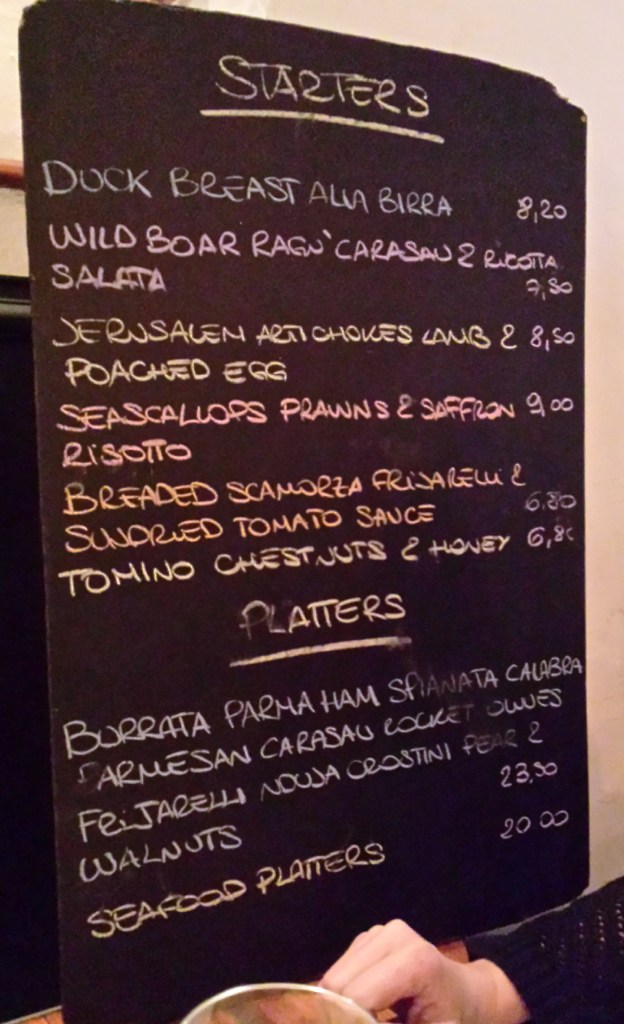 STARTERS
DUCK BREAST ALLA BIRRA 8,20
WILD BOAR RAGU' CARASAU & RICOTTA
SALATA 7,50
JERUSALEM ARTICHOKES LAMB & 8,50
POACHED EGG
SEASCALLOPS PRAWNS & SAFFRON 9,00
RISOTTO
BREADED SCAMORZA FRIJARELLI &
SUNDRIED TOMATO SAUCE 6,80
TOMINO CHESTNUTS & HONEY 6,80
PLATTERS
BURRATA PARMA HAM SPIANATA CALABRA
PARMESAN CARASAU ROCKET OLIVES
FRIJARELLI NDUJA CROSTINI PEAR &
WALNUTS 23,50
SEAFOOD PLATTERS 20 00